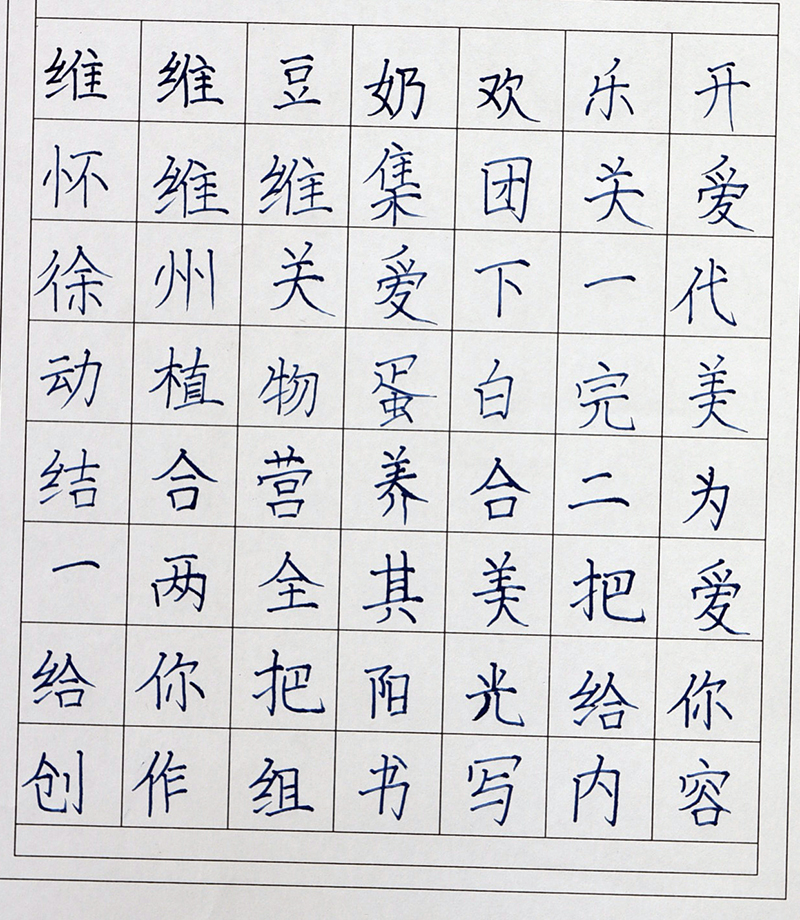 维维豆奶欢乐开
怀维维集团关爱
徐州关爱下一代
动植物蛋白完美
结合营养合二为
一两全其美把爱
给你把阳光给你
创作组书写内容